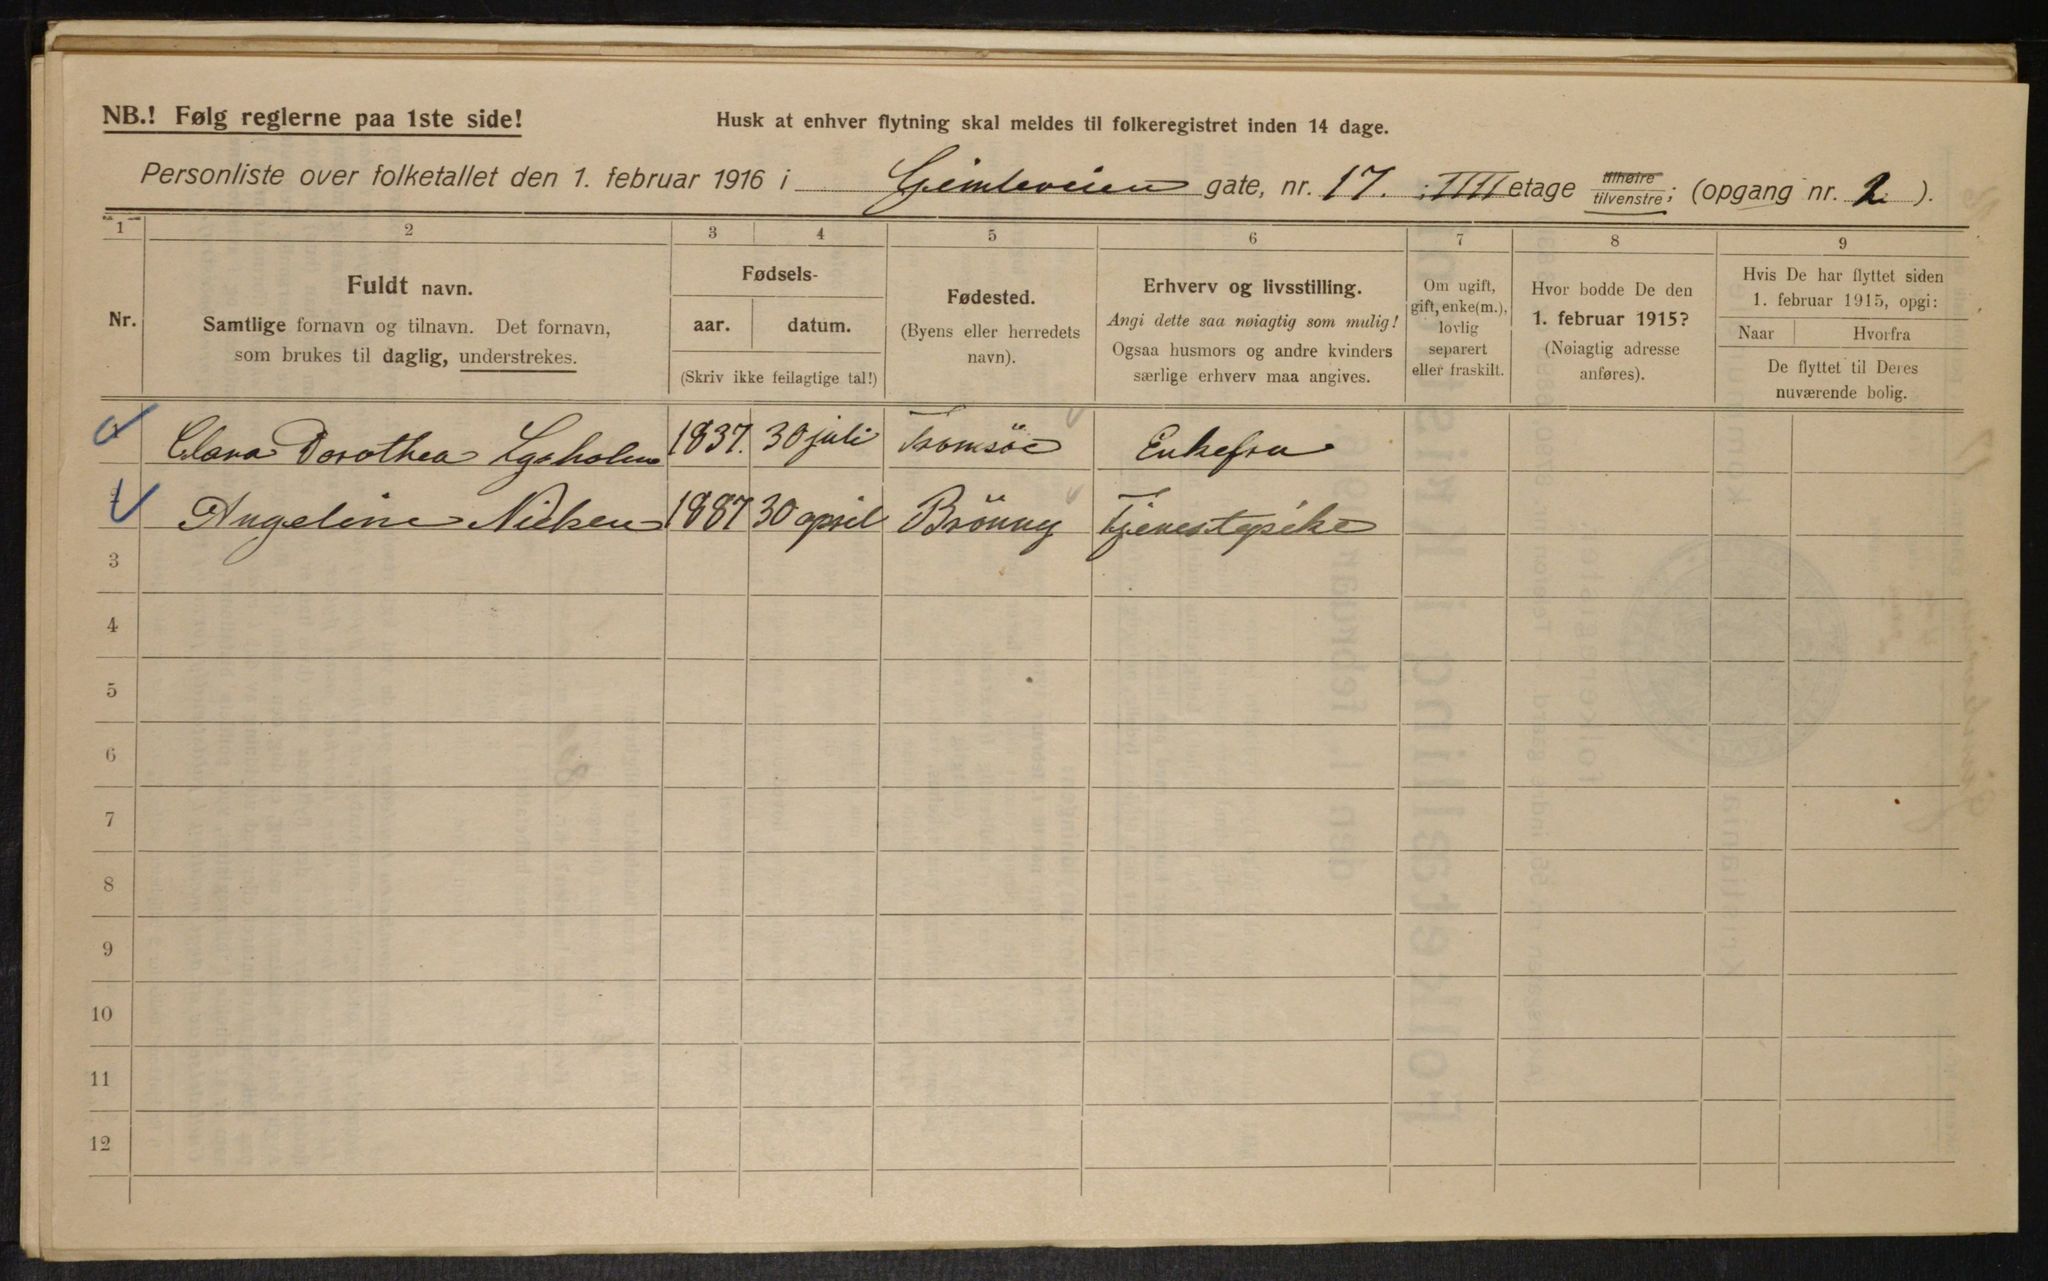 NB.! Følg reglerne paa 1ste side!
Husk at enhver flytning skal meldes til folkeregistret inden 14 dage.
Personliste over folketallet den 1. februar 1916 i Gimleveien gate, nr. 17. IIII etage tilhøire tilvenstre; (opgang nr. 2).
1 2 3 4 5 6 7 8 9
Nr.
Fuldt navn.
Samtlige fornavn og tilnavn. Det fornavn,
som brukes til daglig, understrekes.
Fødsels-
aar. datum.
(Skriv ikke feilagtige tal!)
Fødested.
(Byens eller herredets
navn).
Erhverv og livsstilling.
Angi dette saa nøiagtig som mulig!
Ogsaa husmors og andre kvinders
særlige erhverv maa angives.
Om ugift,
gift, enke(m.),
lovlig
separert
eller fraskilt.
Hvor bodde De den
1. februar 1915?
(Nøiagtig adresse
anføres).
Hvis De har flyttet siden
1. februar 1915, opgi:
Naar Hvorfra
De flyttet til Deres
nuværende bolig.
Clara Dorothea Lysholm 1837. 30 juli Tromsöe Enkefru
Angeline Nielsen 1887 30 april Brönnö Tjenestepike
3
4
5
6
7
8
9
10
11
12